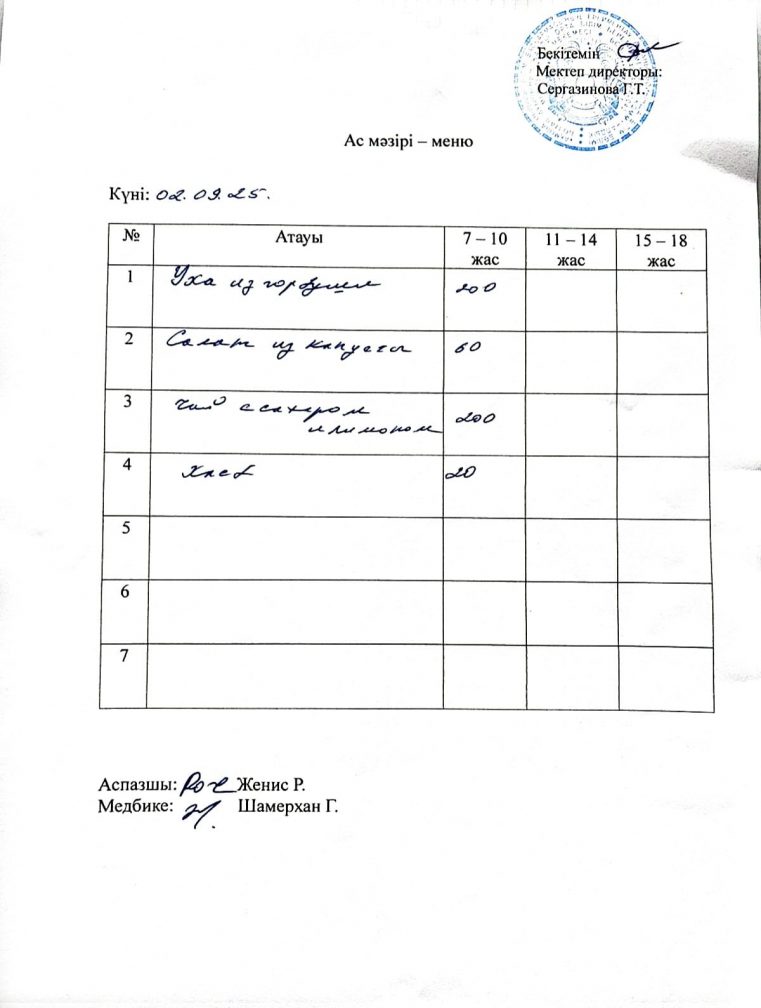 Бекітемін
Мектеп директоры:
Сергазинова Г.Т.
Ас мәзірі – меню
Күні: 02.09.25.
№ Атауы 7 – 10 жас 11 – 14 жас 15 – 18 жас
1 Уха из горбуши 200
2 Салат из капусты 60
3 чай с сахаром
и лимоном 200
4 хлеб 20
5
6
7
Аспазшы: Женис Р.
Медбике: Шамерхан Г.